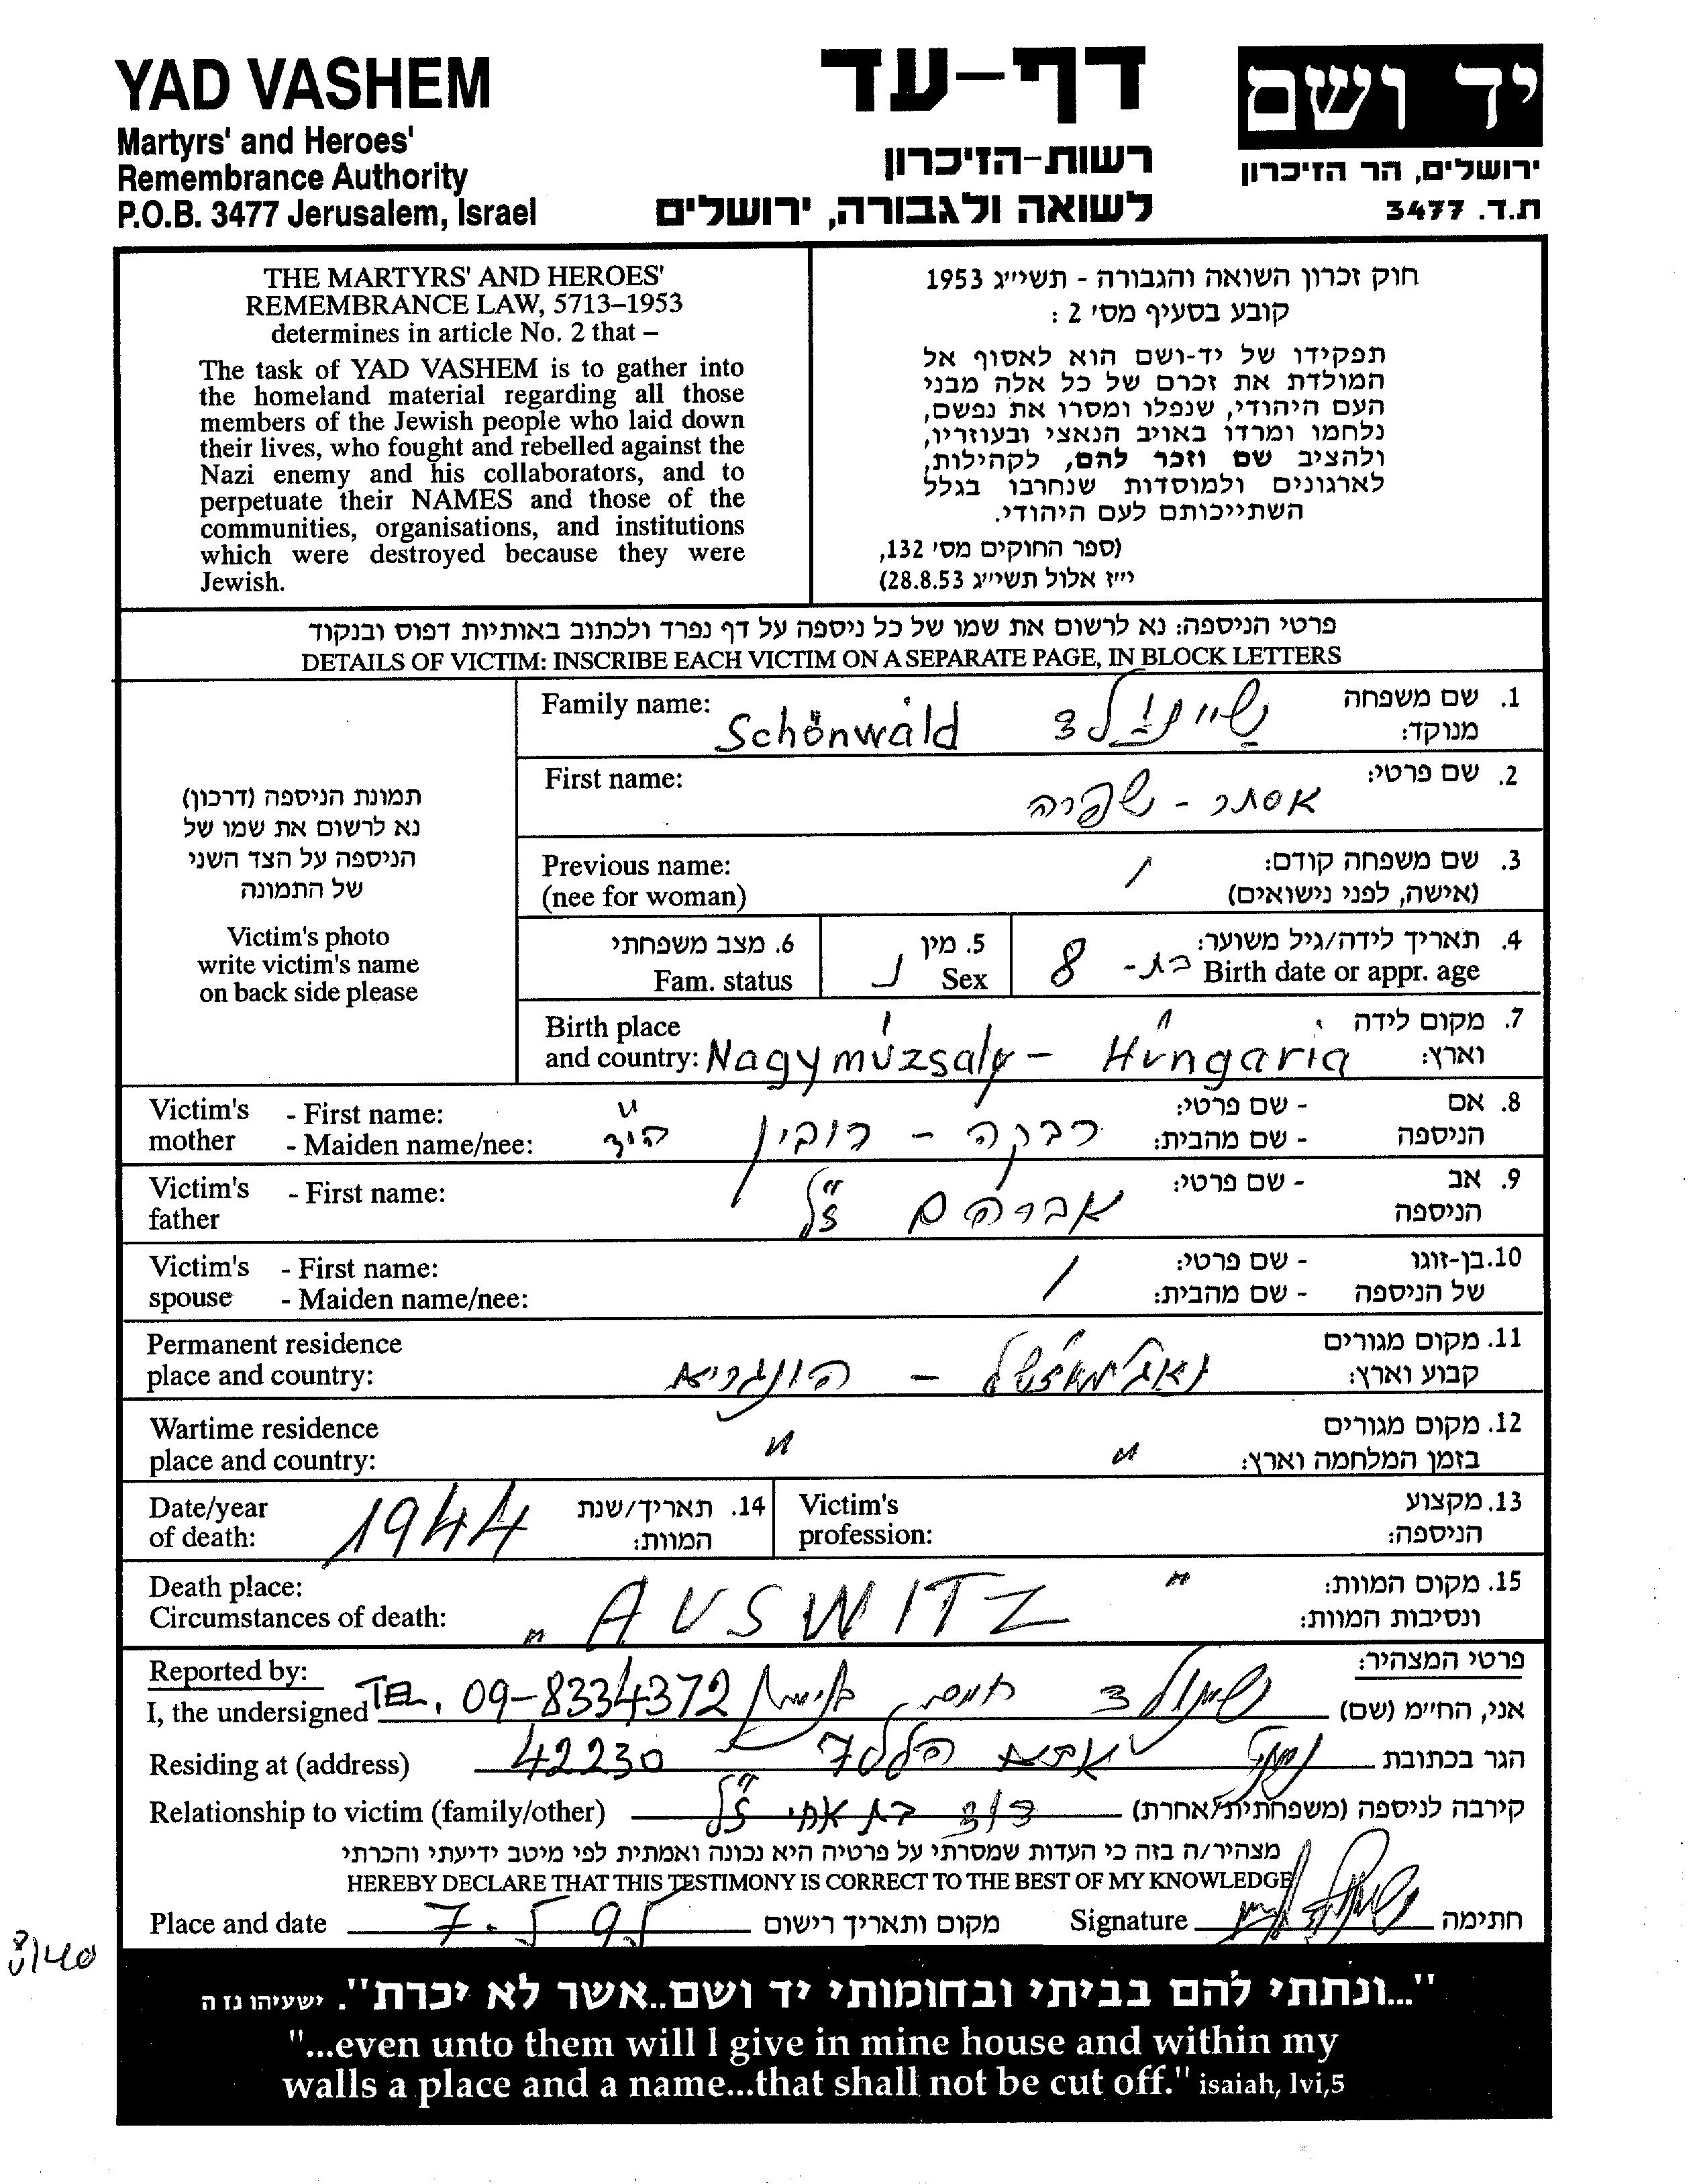 YAD VASHEM
Martyrs' and Heroes'
Remembrance Authority
P.O.B. 3477 Jerusalem, Israel
דף-עד
רשות-הזיכרון
לשואה ולגבורה, ירושלים
יד ושם
ירושלים, הר הזיכרון
ת.ד. 3477
THE MARTYRS' AND HEROES'
REMEMBRANCE LAW, 5713–1953
determines in article No. 2 that –
The task of YAD VASHEM is to gather into
the homeland material regarding all those
members of the Jewish people who laid down
their lives, who fought and rebelled against the
Nazi enemy and his collaborators, and to
perpetuate their NAMES and those of the
communities, organisations, and institutions
which were destroyed because they were
Jewish.
חוק זכרון השואה והגבורה - תשי״ג 1953
קובע בסעיף מס׳ 2 :
תפקידו של יד-ושם הוא לאסוף אל
המולדת את זכרם של כל אלה מבני
העם היהודי, שנפלו ומסרו את נפשם,
נלחמו ומרדו באויב הנאצי ובעוזריו,
ולהציב שם וזכר להם, לקהילות,
לארגונים ולמוסדות שנחרבו בגלל
השתייכותם לעם היהודי.
(ספר החוקים מס׳ 132,
י״ז אלול תשי״ג 28.8.53)
פרטי הניספה: נא לרשום את שמו של כל ניספה על דף נפרד ולכתוב באותיות דפוס ובנקוד
DETAILS OF VICTIM: INSCRIBE EACH VICTIM ON A SEPARATE PAGE, IN BLOCK LETTERS
תמונת הניספה (דרכון)
נא לרשום את שמו של
הניספה על הצד השני
של התמונה
Victim's photo
write victim's name
on back side please
Family name: Schönwald שיינולד 1. שם משפחה
מנוקד:
First name: אסתר - שפרה 2. שם פרטי:
Previous name: / 3. שם משפחה קודם:
(nee for woman) (אישה, לפני נישואים)
6. מצב משפחתי 5. מין 4. תאריך לידה/גיל משוער:
Fam. status Sex נ Birth date or appr. age בת- 8
Birth place 7. מקום לידה
and country: Nagymúzsaly – Hungaria וארץ:
Victim's - First name: - שם פרטי: 8. אם
mother - Maiden name/nee: רבקה - רובין הי״ד - שם מהבית: הניספה
Victim's - First name: אברהם ז״ל - שם פרטי: 9. אב
father הניספה
Victim's - First name: - שם פרטי: 10. בן-זוגו
spouse - Maiden name/nee: / - שם מהבית: של הניספה
Permanent residence 11. מקום מגורים
place and country: - הונגריא קבוע וארץ:
Wartime residence 12. מקום מגורים
place and country: " " בזמן המלחמה וארץ:
Date/year 1944 14. תאריך/שנת Victim's 13. מקצוע
of death: המוות: profession: הניספה:
Death place: 15. מקום המוות:
Circumstances of death: "AUSWITZ" ונסיבות המוות:
Reported by: פרטי המצהיר:
I, the undersigned TEL. 09-8334372 אני, החיימ (שם)
Residing at (address) 42230 הגר בכתובת
Relationship to victim (family/other) דוד בת אחי ז״ל קירבה לניספה (משפחתית/אחרת)
מצהיר/ה בזה כי העדות שמסרתי על פרטיה היא נכונה ואמתית לפי מיטב ידיעתי והכרתי
HEREBY DECLARE THAT THIS TESTIMONY IS CORRECT TO THE BEST OF MY KNOWLEDGE
Place and date 7.5 95 מקום ותאריך רישום Signature חתימה
"...ונתתי להם בביתי ובחומותי יד ושם..אשר לא יכרת". ישעיהו נז ה
"...even unto them will I give in mine house and within my
walls a place and a name...that shall not be cut off." isaiah, lvi,5